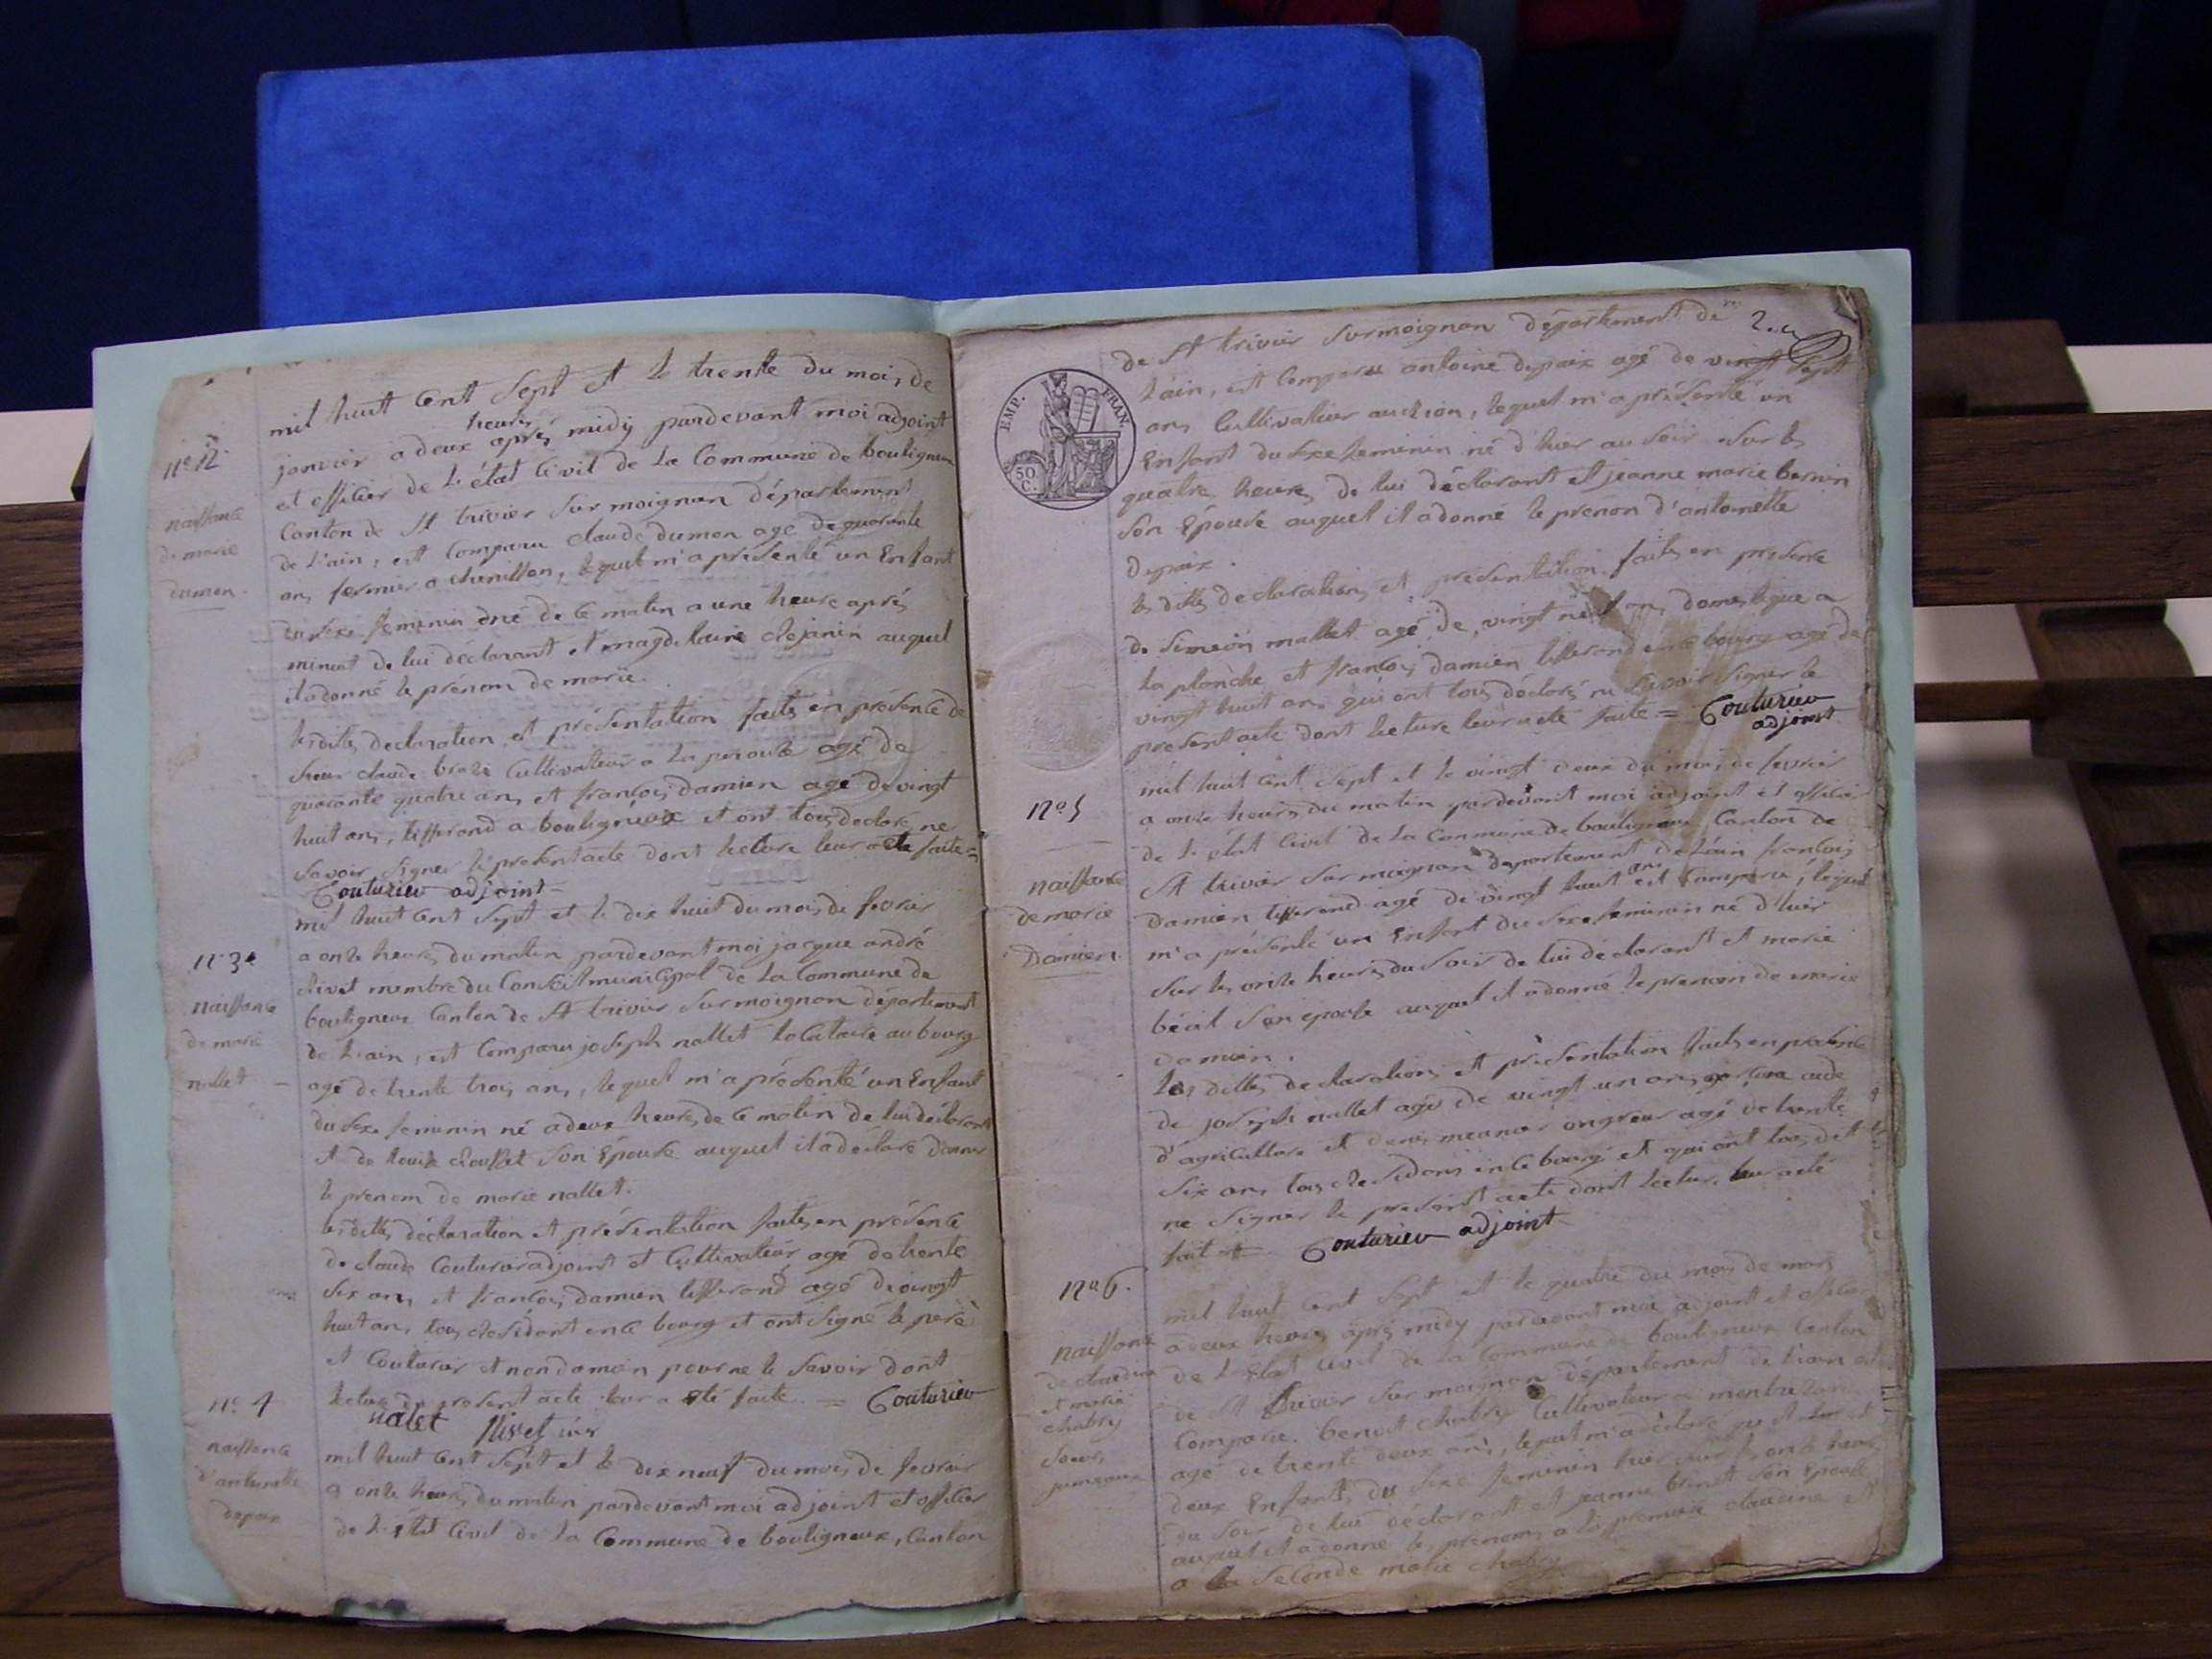 mil huit cent sept et le trente du mois de
janvier a deux heures après midy pardevant moi adjoint
et officier de l'état civil de la Commune de bouligneux
Canton de St trivier sur moignan département
de l'ain, est comparu claude dumon agé de quarante
ans fermier a chenisson, lequel m'a présenté un Enfant
du sexe feminin né de ce matin a une heure après
minuit de lui déclarant et magdelaine dejanin auquel
il a donné le prénom de marie.
lesdites declaration et présentation faites en présence de
claude cultivateur a la perouse agé de
quarante quatre ans et françois damien agé de vingt
huit ans, tisserand a bouligneux et ont tous declaré ne
savoir signer le present acte dont lecture leur a eté faite =
Couturier adjoint
n° 2.
naissance
de marie
dumon.
mil huit cent sept et le dix huit du mois de fevrier
a onze heures du matin pardevant moi jacque andré
nivet membre du Conseil municipal de la Commune de
bouligneux Canton de St trivier sur moignan département
de l'ain, est comparu joseph nallet locataire au bourg
agé de trente trois ans, lequel m'a présenté un Enfant
du sexe feminin né a deux heures de ce matin de lui déclarant
et de louise son Epouse auquel il a déclaré donner
le prenom de marie nallet.
lesdites déclaration et présentation faites en présence
de claude Couturier adjoint et Cultivateur agé de trente
six ans et françois damien tisserand agé de vingt
huit ans tous residant en ce bourg et ont signé le père
et Couturier et non damien pour ne le savoir dont
lecture du present acte leur a eté faite. = Couturier
nalet Nivet
n° 3.
naissance
de marie
nallet
mil huit cent sept et le dix neuf du mois de fevrier
a onze heures du matin pardevant moi adjoint et officier
de l'état civil de la Commune de bouligneux, Canton
n° 4
naissance
d'antoinette
depaix
2.
de St trivier sur moignan département de
l'ain, est comparu antoine depaix agé de vingt sept
ans Cultivateur au, lequel m'a présenté un
Enfant du sexe feminin né d'hier au soir sur les
quatre heures de lui déclarant et jeanne marie bernin
son Epouse auquel il a donné le prenom d'antoinette
depaix.
les dites declarations et présentation faites en presence
de simeon mallet agé de vingt neuf ans domestique a
la planche et françois damien tisserand en ce bourg agé de
vingt huit ans qui ont tous déclaré ne savoir signer le
present acte dont lecture leur a eté faite = Couturier
adjoint
EMP. FRAN.
50 C.
mil huit cent sept et le vingt deux du mois de fevrier
a onze heures du matin pardevant moi adjoint et officier
de l'état civil de la Commune de bouligneux Canton de
St trivier sur moignan département de l'ain françois
damien tisserand agé de vingt huit ans est comparu, lequel
m'a présenté un Enfant du sexe feminin né d'hier
sur les onze heures du soir de lui déclarant et marie
béal son epouse auquel il a donné le prenom de marie
damien.
les dittes declarations et présentation faites en presence
de joseph nallet agé de vingt un ans aide
d'agriculture et denis meunier ongreur agé de trente
six ans tous residans en ce bourg et qui ont tous dit
ne signer le present acte dont lecture leur a eté
fait = Couturier adjoint
n° 5
naissance
de marie
Damien.
mil huit cent sept et le quatre du mois de mars
a deux heures après midy pardevant moi adjoint et officier
de l'Etat civil de la Commune de bouligneux Canton
de St trivier sur moignan département de l'ain est
comparu benoit chabry Cultivateur a
agé de trente deux ans, lequel m'a déclaré
deux Enfants du sexe feminin hier sur les onze heures
du soir de lui déclarant et jeanne benoit son Epouse
auquel il a donné les prenoms a la premiere claudine et
a la seconde marie chabry
n° 6.
naissance
de claudine
et marie
chabry
soeurs
jumeaux